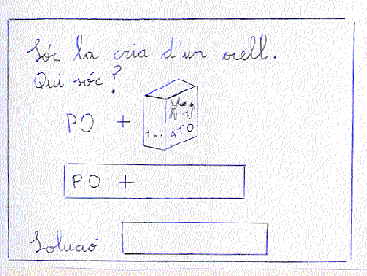 Sóc la cria d'un ocell.
Qui sóc?
PO +
PO +
Solució